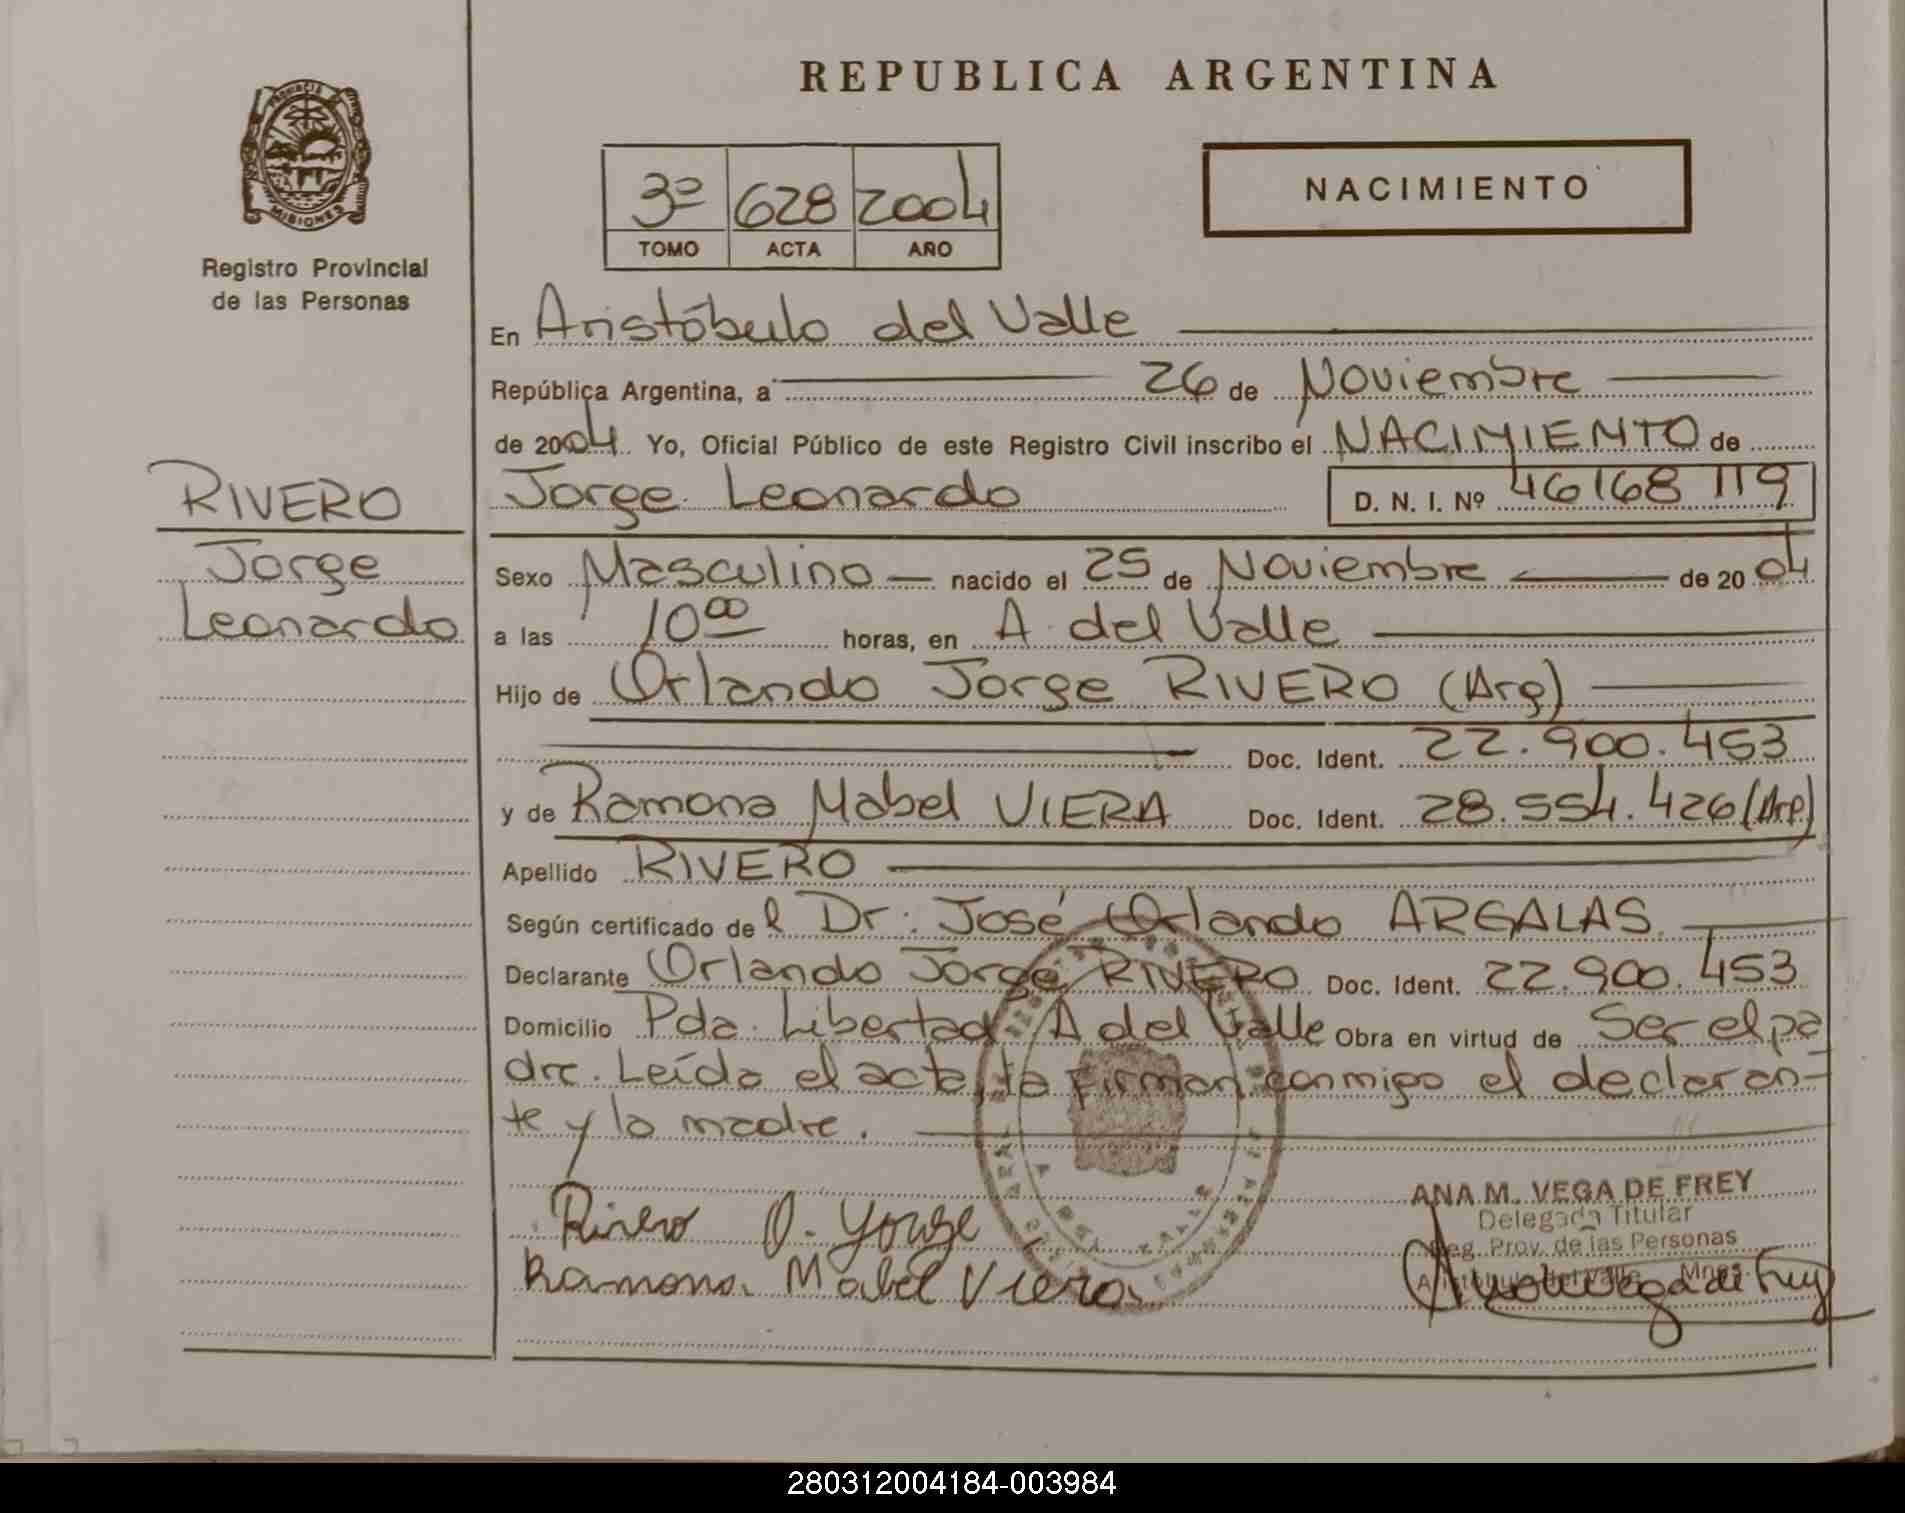 REPUBLICA ARGENTINA
PROVINCIA DE
MISIONES
Registro Provincial
de las Personas
3º 628 2004
TOMO ACTA AÑO
NACIMIENTO
En Aristóbulo del Valle
República Argentina, a 26 de Noviembre
de 2004. Yo, Oficial Público de este Registro Civil inscribo el NACIMIENTO de
RIVERO
Jorge Leonardo D. N. I. Nº 46168119
Jorge
Leonardo
Sexo Masculino nacido el 25 de Noviembre de 2004
a las 10 00 horas, en A. del Valle
Hijo de Orlando Jorge RIVERO (Arg)
Doc. Ident. 22.900.453
y de Ramona Mabel VIERA Doc. Ident. 28.554.426 (Arg)
Apellido RIVERO
Según certificado del Dr. José Orlando ARGALAS.
Declarante Orlando Jorge RIVERO Doc. Ident. 22.900.453
Domicilio Pda. Libertad A del Valle Obra en virtud de Ser el pa
dre. Leída el acta, la firman conmigo el declaran-
te y la madre.
Rivero O. Yorge
Ramona Mabel Viera
ANA M. VEGA DE FREY
Delegada Titular
Reg. Prov. de las Personas
Aristóbulo del Valle Mnes.
Vega de Frey
280312004184-003984